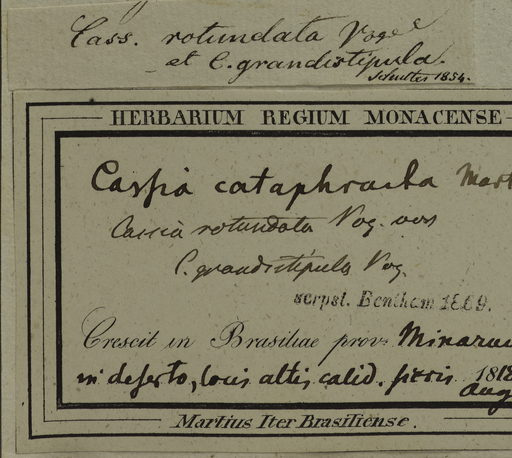 Cass. rotundata Vogel
et C. grandistipula.
1854.
HERBARIUM REGIUM MONACENSE
Cassia cataphracta Mart
Cassia rotundata Vog. var
C. grandistipula Vog.
scrpst. Bentham 1869.
Crescit in Brasiliae prov: Minarum
in deserto, locis altis calid. siccis 1818
Aug
Martius Iter Brasiliense.